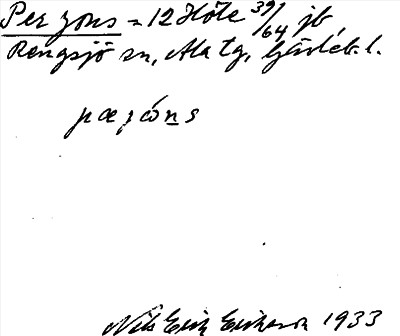 Per Jons = 12 Höle 39/64 jb
Rengsjö sn, Ala tg, Gävleb. l.
pæɟóns
Nils Erik Eriksson 1933